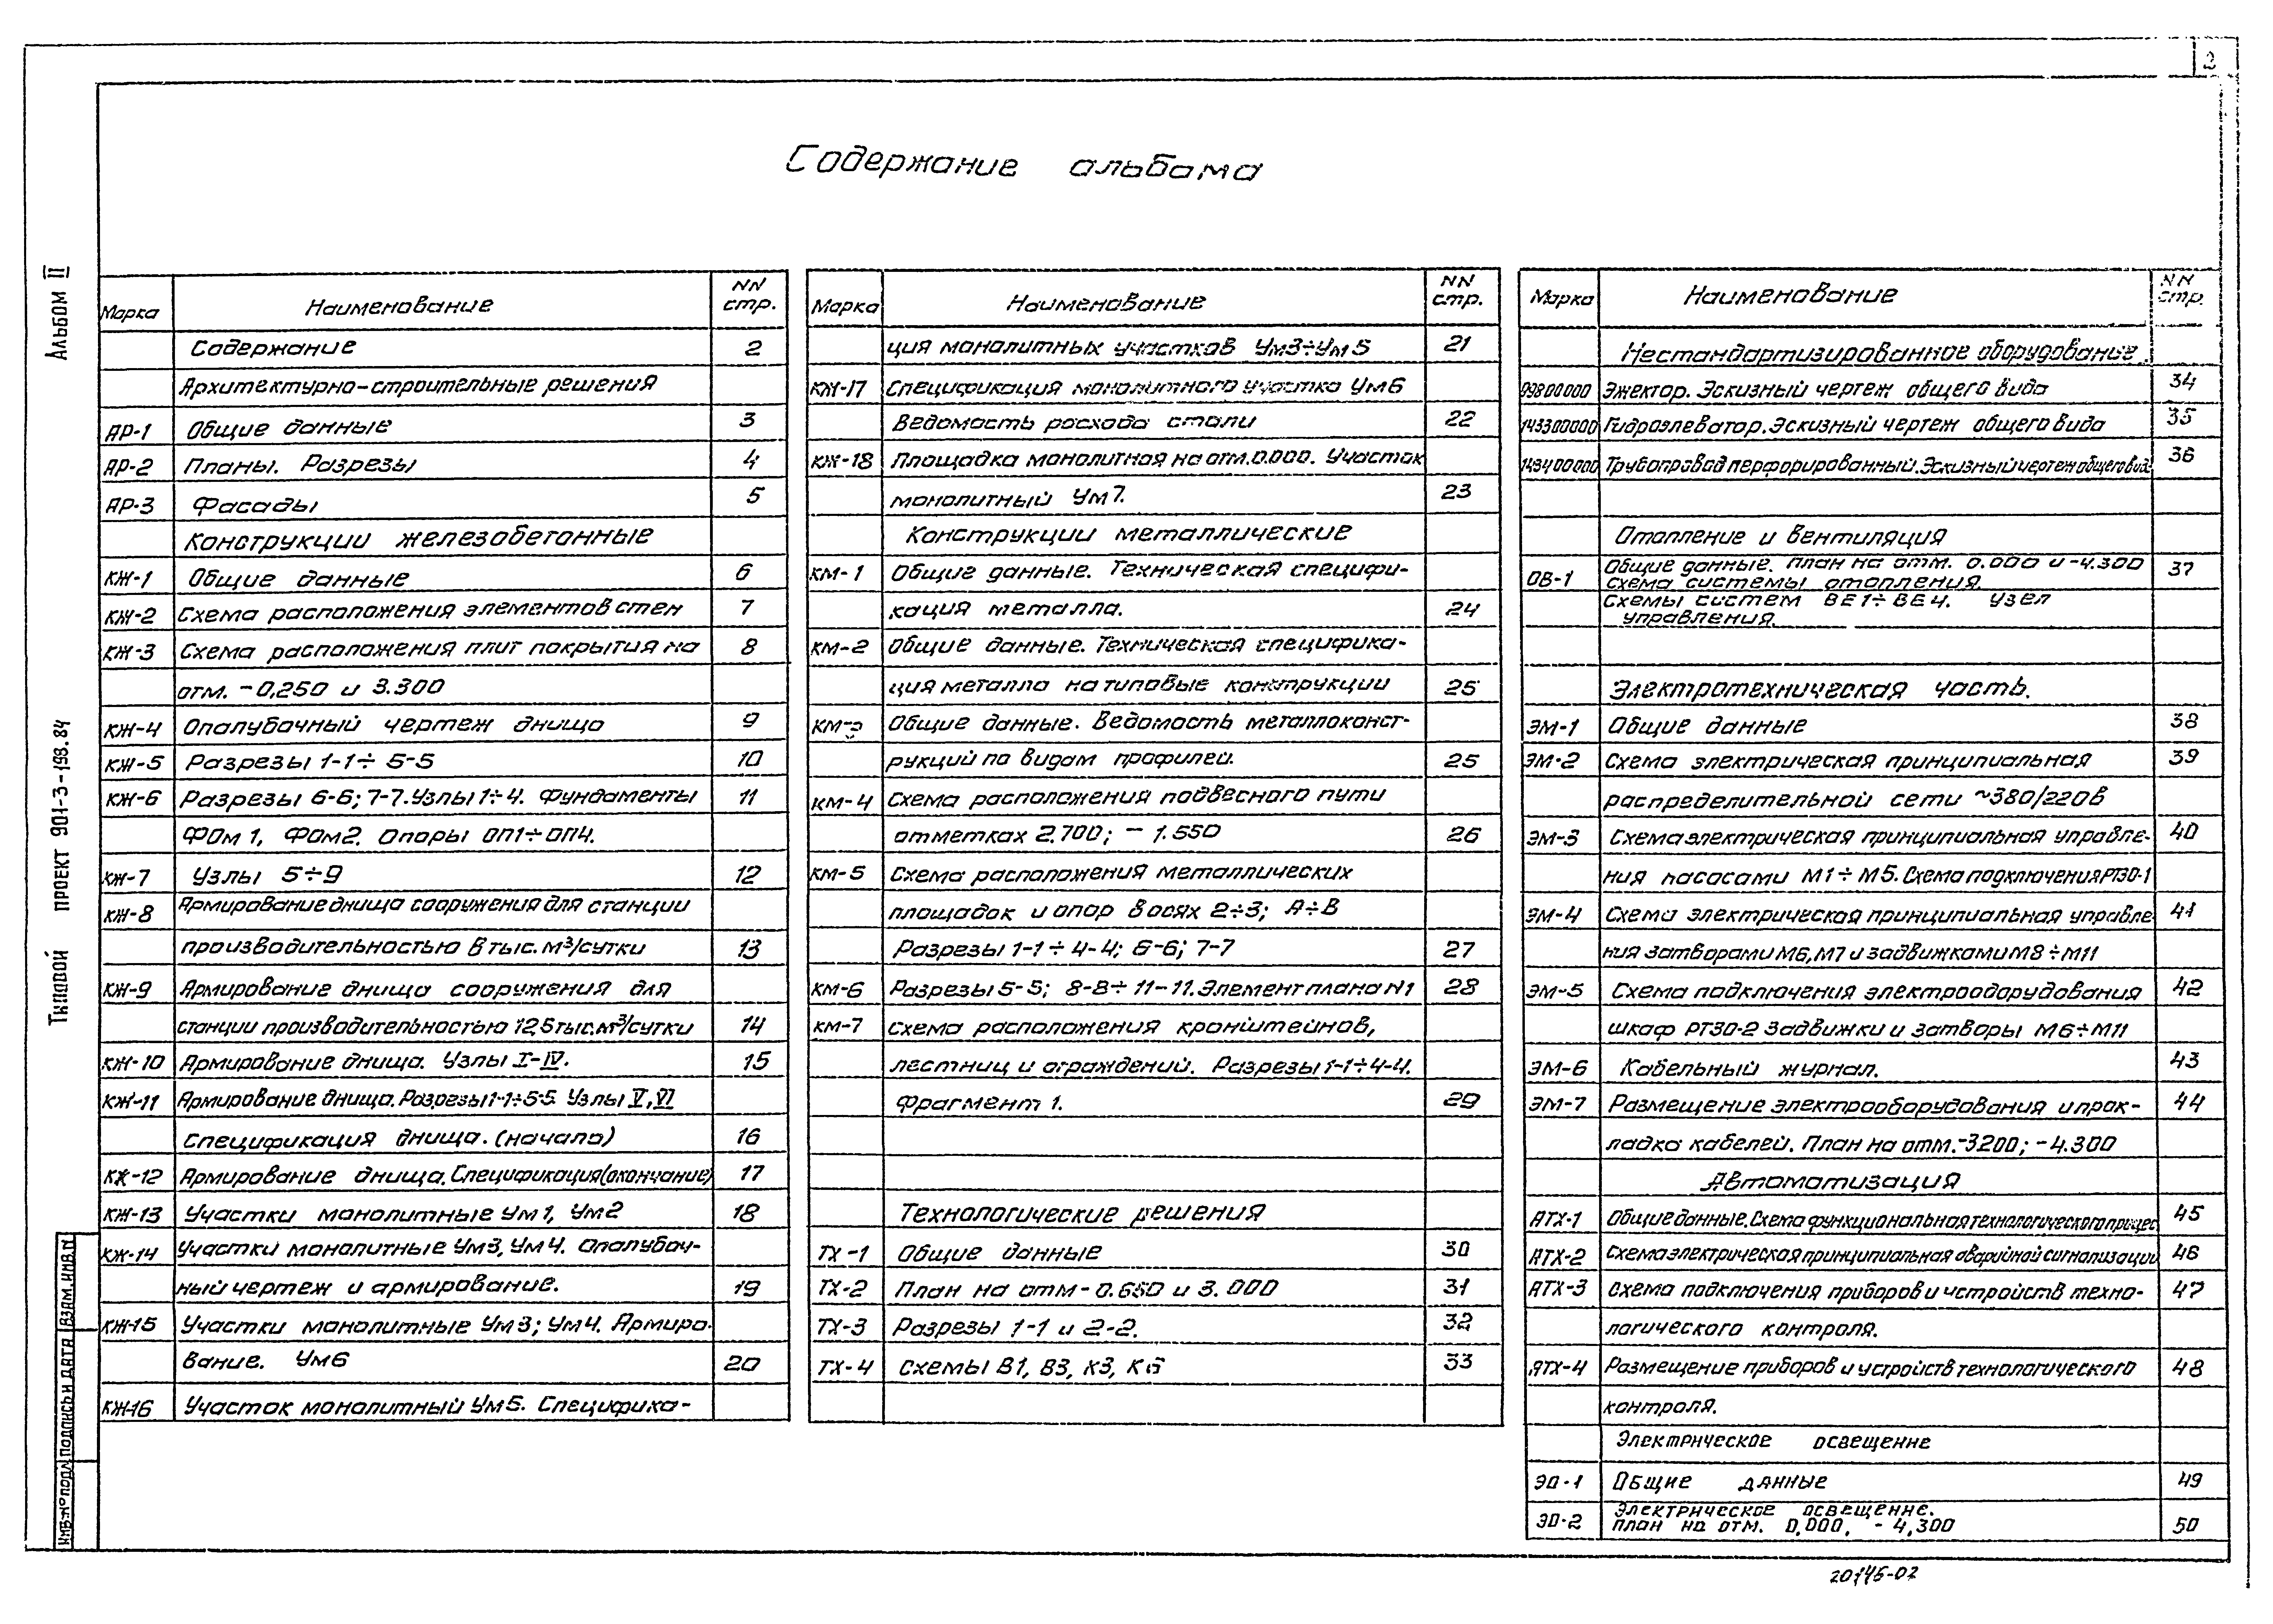 2
Содержание альбома
Альбом II
Типовой проект 901-3-198.84
Инв.№ подл. Подпись и дата Взам.инв.N
Марка Наименование NN стр.
Содержание 2
Архитектурно-строительные решения
АР-1 Общие данные 3
АР-2 Планы. Разрезы 4
АР-3 Фасады 5
Конструкции железобетонные
КЖ-1 Общие данные 6
КЖ-2 Схема расположения элементов стен 7
КЖ-3 Схема расположения плит покрытия на 8
отм. -0,250 и 3.300
КЖ-4 Опалубочный чертеж днища 9
КЖ-5 Разрезы 1-1÷5-5 10
КЖ-6 Разрезы 6-6; 7-7. Узлы 1÷4. Фундаменты 11
ФОм 1, ФОм2. Опоры ОП1÷ОП4.
КЖ-7 Узлы 5÷9 12
КЖ-8 Армирование днища сооружения для станции
производительностью 8 тыс. м³/сутки 13
КЖ-9 Армирование днища сооружения для
станции производительностью 12,5 тыс. м³/сутки 14
КЖ-10 Армирование днища. Узлы I-IV. 15
КЖ-11 Армирование днища. Разрезы 1-1÷5-5. Узлы V, VI
Спецификация днища. (начало) 16
КЖ-12 Армирование днища. Спецификация (окончание) 17
КЖ-13 Участки монолитные Ум1, Ум2 18
КЖ-14 Участки монолитные Ум3, Ум4. Опалубоч-
ный чертеж и армирование. 19
КЖ-15 Участки монолитные Ум3; Ум4. Армиро-
вание. Ум6 20
КЖ-16 Участок монолитный Ум5. Специфика-
Марка Наименование NN стр.
ция монолитных участков Ум3÷Ум5 21
КЖ-17 Спецификация монолитного участка Ум6
Ведомость расхода стали 22
КЖ-18 Площадка монолитная на отм. 0.000. Участок
монолитный Ум7. 23
Конструкции металлические
КМ-1 Общие данные. Техническая специфи-
кация металла. 24
КМ-2 Общие данные. Техническая специфика-
ция металла на типовые конструкции 25
КМ-3 Общие данные. Ведомость металлоконст-
рукций по видам профилей. 25
КМ-4 Схема расположения подвесного пути
отметках 2.700; -1.550 26
КМ-5 Схема расположения металлических
площадок и опор в осях 2÷3; А÷В
Разрезы 1-1÷4-4; 6-6; 7-7 27
КМ-6 Разрезы 5-5; 8-8÷11-11. Элемент плана N1 28
КМ-7 Схема расположения кронштейнов,
лестниц и ограждений. Разрезы 1-1÷4-4.
Фрагмент 1. 29
Технологические решения
ТХ-1 Общие данные 30
ТХ-2 План на отм -0.650 и 3.000 31
ТХ-3 Разрезы 1-1 и 2-2. 32
ТХ-4 Схемы В1, В3, К3, К6 33
Марка Наименование NN стр.
Нестандартизированное оборудование.
99800000 Эжектор. Эскизный чертеж общего вида 34
143300000 Гидроэлеватор. Эскизный чертеж общего вида 35
143400000 Трубопровод перфорированный. Эскизный чертеж общего вид. 36
Отопление и вентиляция
ОВ-1 Общие данные. План на отм. 0.000 и -4.300 37
схема системы отопления.
Схемы систем ВЕ1÷ВЕ4. Узел
управления.
Электротехническая часть.
ЭМ-1 Общие данные 38
ЭМ-2 Схема электрическая принципиальная 39
распределительной сети ~380/220в
ЭМ-3 Схема электрическая принципиальная управле- 40
ния насосами М1÷М5. Схема подключения РТ30-1
ЭМ-4 Схема электрическая принципиальная управле 41
ния затворами М6, М7 и задвижками М8÷М11
ЭМ-5 Схема подключения электрооборудования 42
шкаф РТ30-2 Задвижки и затворы М6÷М11
ЭМ-6 Кабельный журнал. 43
ЭМ-7 Размещение электрооборудования и прок- 44
ладка кабелей. План на отм. -3200; -4.300
Автоматизация
АТХ-1 Общие данные. Схема функциональная технологического процес 45
АТХ-2 Схема электрическая принципиальная аварийной сигнализации 46
АТХ-3 Схема подключения приборов и устройств техно- 47
логического контроля.
АТХ-4 Размещение приборов и устройств технологического 48
контроля.
Электрическое освещение
ЭО-1 Общие данные 49
ЭО-2 Электрическое освещение.
план на отм. 0,000, -4,300 50
20145-02